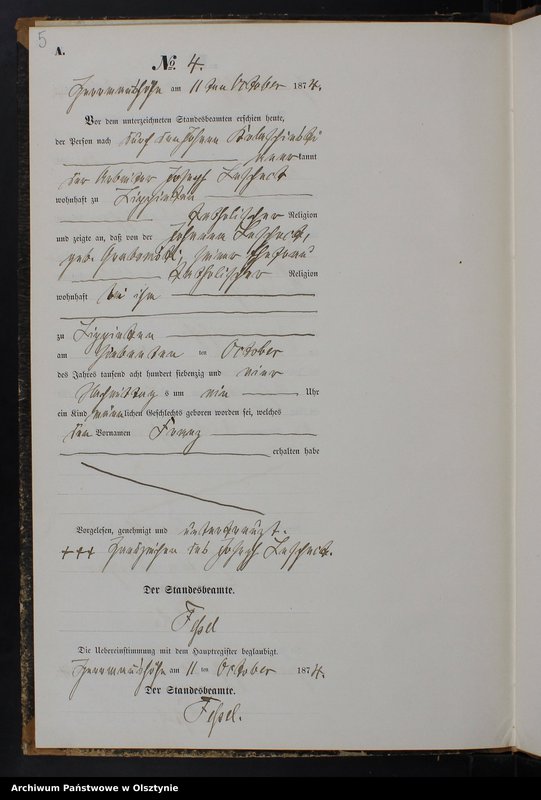 5
A.
No. 4.
Hermannshöhe am 11 ten October 1874.
Vor dem unterzeichneten Standesbeamten erschien heute,
der Person nach durch den Johann
aner kannt
der Arbeiter Joseph Laschect
wohnhaft zu Lippinken
katholischer Religion
und zeigte an, daß von der Johanna Laschect,
geb. Grabowski, seiner Ehefrau
katholischer Religion
wohnhaft bei ihm
zu Lippinken
am siebenten ten October
des Jahres tausend acht hundert siebenzig und vier
Nachmittag s um ein Uhr
ein Kind männlichen Geschlechts geboren worden sei, welches
den Vornamen Franz
erhalten habe
Vorgelesen, genehmigt und unterkreuzt.
+++ Handzeichen des Joseph Laschect.
Der Standesbeamte.
Fessel
Die Uebereinstimmung mit dem Hauptregister beglaubigt.
Hermannshöhe am 11 ten October 1874.
Der Standesbeamte.
Fessel.
Archiwum Państwowe w Olsztynie